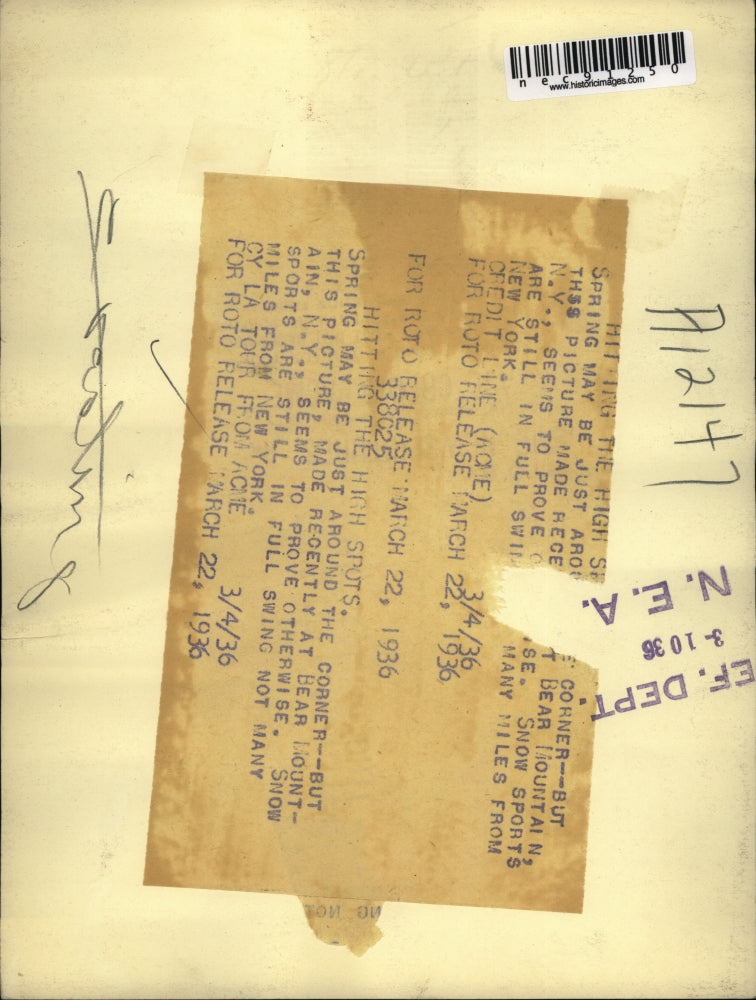 nec91250
www.historicimages.com
A12147
N.E.A.
3-1036
EF. DEPT.
HITTING THE HIGH SP
SPRING MAY BE JUST AROU E CORNER--BUT
THSS PICTURE MADE RECE T BEAR MOUNTAIN,
N.Y., SEEMS TO PROVE O SE. SNOW SPORTS
ARE STILL IN FULL SWIN MANY MILES FROM
NEW YORK.
CREDIT LINE (ACME) 3/4/36
FOR ROTO RELEASE MARCH 22, 1936
FOR ROTO RELEASE MARCH 22, 1936
338025
HITTING THE HIGH SPOTS.
SPRING MAY BE JUST AROUND THE CORNER--BUT
THIS PICTURE, MADE RECENTLY AT BEAR MOUNT-
AIN, N.Y., SEEMS TO PROVE OTHERWISE. SNOW
SPORTS ARE STILL IN FULL SWING NOT MANY
MILES FROM NEW YORK.
CY LA TOUR FROM ACME 3/4/36
FOR ROTO RELEASE MARCH 22, 1936
NG NOT